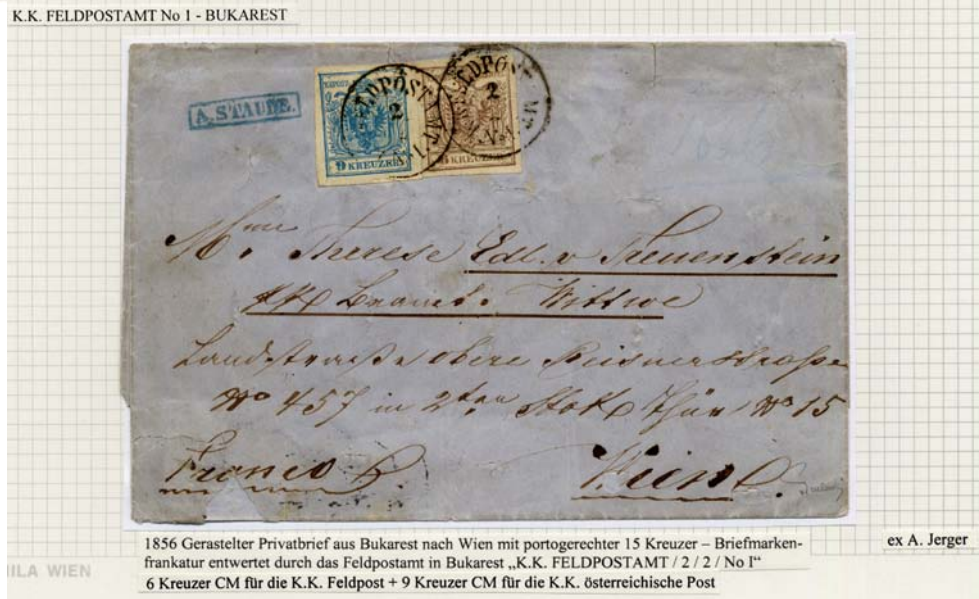 K.K. FELDPOSTAMT No 1 - BUKAREST
A. STAUDE.
FELDPOST
2
No I.
FELDPOST
2
9 KREUZER
6 KREUZER
Mme Therese Edl. v Treuenstein
KK Beamt. Wittwe
Landstrasse obere Reisnerstrasse
No 457 in 2ten Stok Thür No 15
Franco
Wien
1856 Gerastelter Privatbrief aus Bukarest nach Wien mit portogerechter 15 Kreuzer – Briefmarken-
frankatur entwertet durch das Feldpostamt in Bukarest „K.K. FELDPOSTAMT / 2 / 2 / No I“
6 Kreuzer CM für die K.K. Feldpost + 9 Kreuzer CM für die K.K. österreichische Post
ex A. Jerger
ILA WIEN